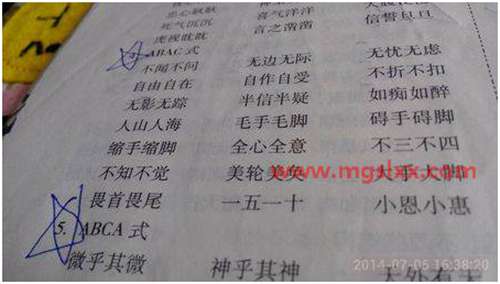 忠心耿耿 喜气洋洋
死气沉沉 言之凿凿 信誓旦旦
虎视眈眈
ABAC 式
不闻不问 无边无际 无忧无虑
自由自在 自作自受 不折不扣
无影无踪 半信半疑 如痴如醉
人山人海 毛手毛脚 碍手碍脚
缩手缩脚 全心全意 不三不四
不知不觉 美轮美奂 大手大脚
www.mgslxx.com
畏首畏尾 一五一十 小恩小惠
5. ABCA 式
微乎其微 神乎其神 天外有天
2014-07-05 16:38:20